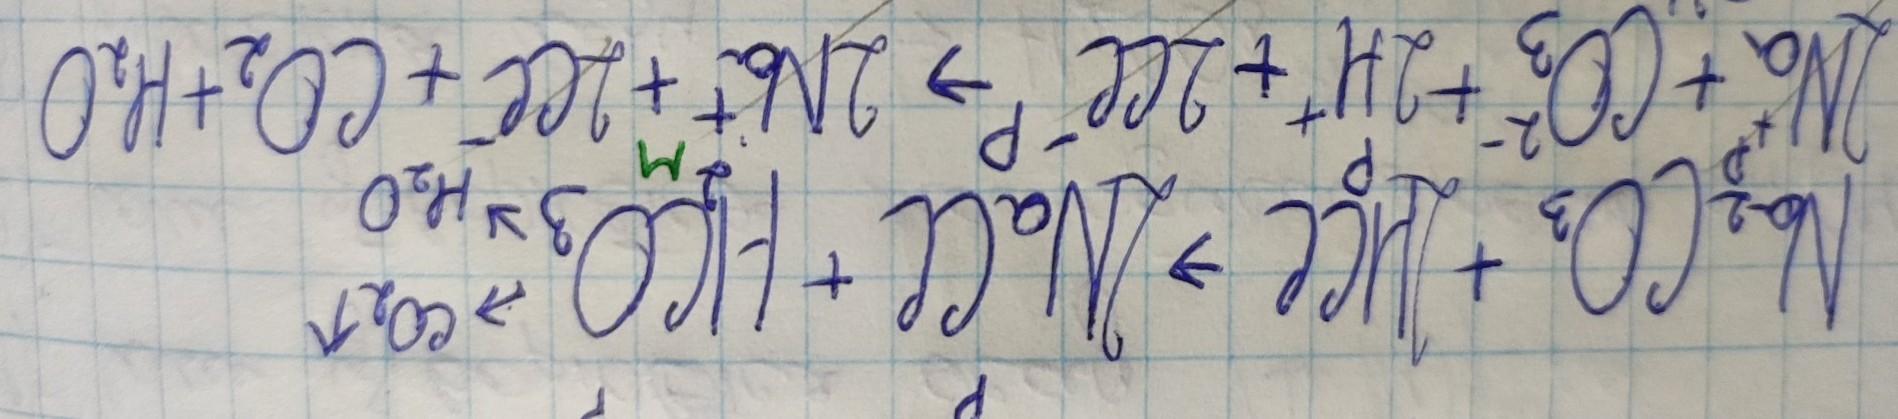 Na₂CO₃ + 2HCl → 2NaCl + H₂CO₃ → CO₂↑
↘ H₂O
р р р м
2Na⁺ + CO₃²⁻ + 2H⁺ + 2Cl⁻ → 2Na⁺ + 2Cl⁻ + CO₂ + H₂O